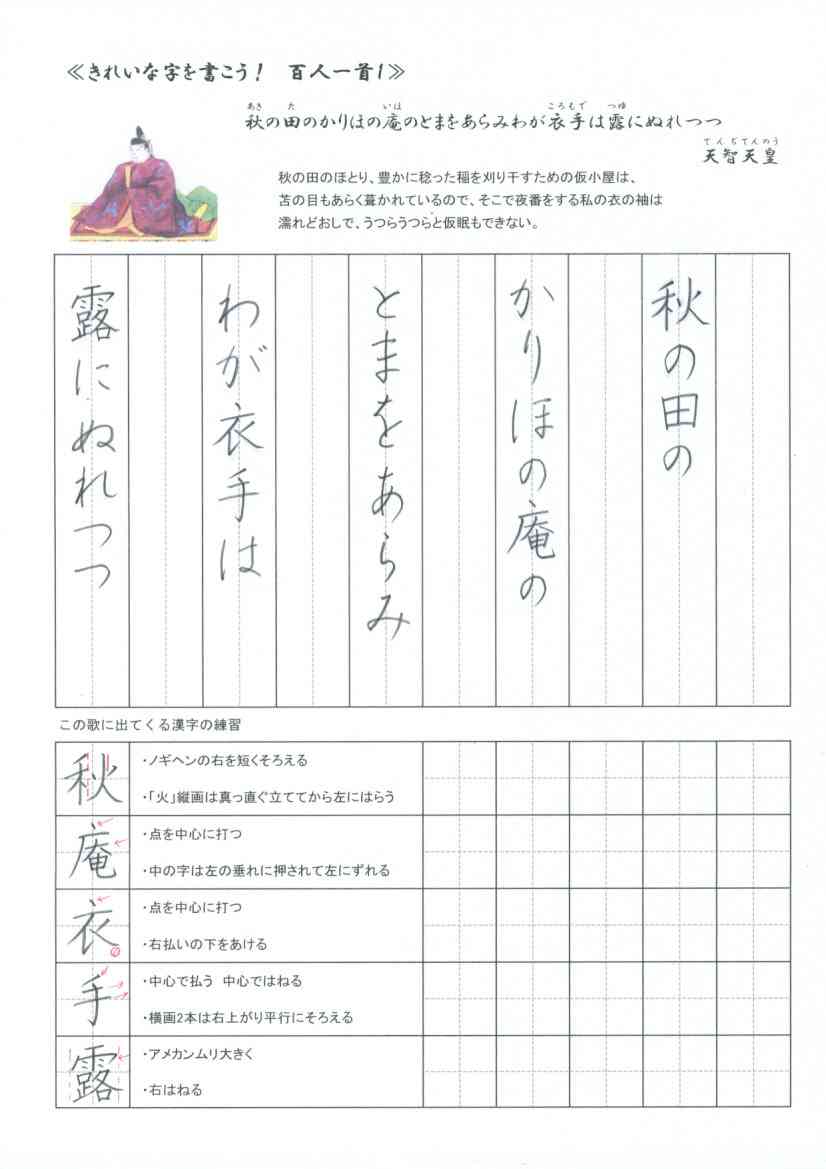 ≪きれいな字を書こう！　百人一首1≫
あき　た　いほ　ころもで　つゆ
秋の田のかりほの庵のとまをあらみわが衣手は露にぬれつつ
てんぢてんのう
天智天皇
秋の田のほとり、豊かに稔った稲を刈り干すための仮小屋は、
苫の目もあらく葺かれているので、そこで夜番をする私の衣の袖は
濡れどおしで、うつらうつらと仮眠もできない。
秋の田の
かりほの庵の
とまをあらみ
わが衣手は
露にぬれつつ
この歌に出てくる漢字の練習
秋
・ノギヘンの右を短くそろえる
・「火」縦画は真っ直ぐ立ててから左にはらう
庵
・点を中心に打つ
・中の字は左の垂れに押されて左にずれる
衣
・点を中心に打つ
・右払いの下をあける
手
・中心で払う　中心ではねる
・横画2本は右上がり平行にそろえる
露
・アメカンムリ大きく
・右はねる